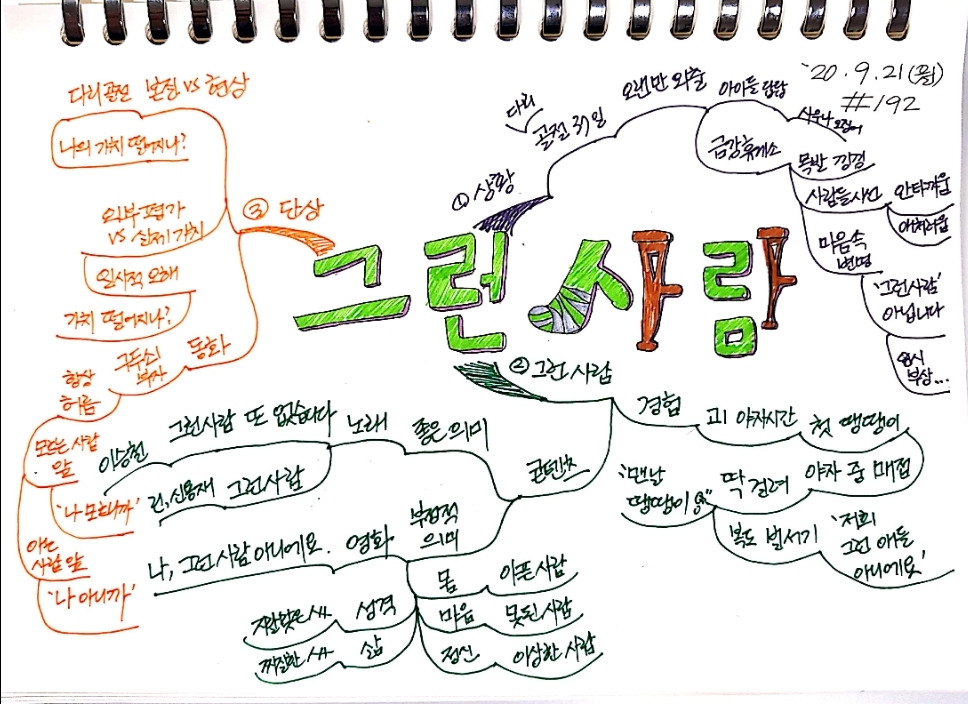 '20. 9. 21(월)
#192
그런사람
① 상황
다리
골절 37일
오랜만 외출
아이들 답답
금강휴게소
목발 낑낑
사람들 시선
안타까움
애처로움
마음속
변명
'그런사람'
아닙니다
일시
부상...
② 그런 사람
경험
고1 야자시간
첫 땡땡이
야자 중 매점
딱 걸려
"맨날
땡땡이
복도 벌서기
'저희
그런 애들
아니에요'
콘텐츠
좋은 의미
노래
그런사람 또 없습니다
이승철
린, 신용재 그런사람
부정적
의미
영화
나, 그런 사람 아니에요.
몸
아픈사람
마음
못된사람
정신
이상한 사람
성격
지랄맞은 사람
삶
찌질한 사람
③ 단상
다리골절 본질 vs 현상
나의 가치 떨어지나?
외부 평가
vs 실제가치
인사적 오해
가치 떨어지나?
동화
구두쇠
부자
항상
허름
모르는 사람
앞
'나 모르니까'
아는
사람 앞
'나 아니까'